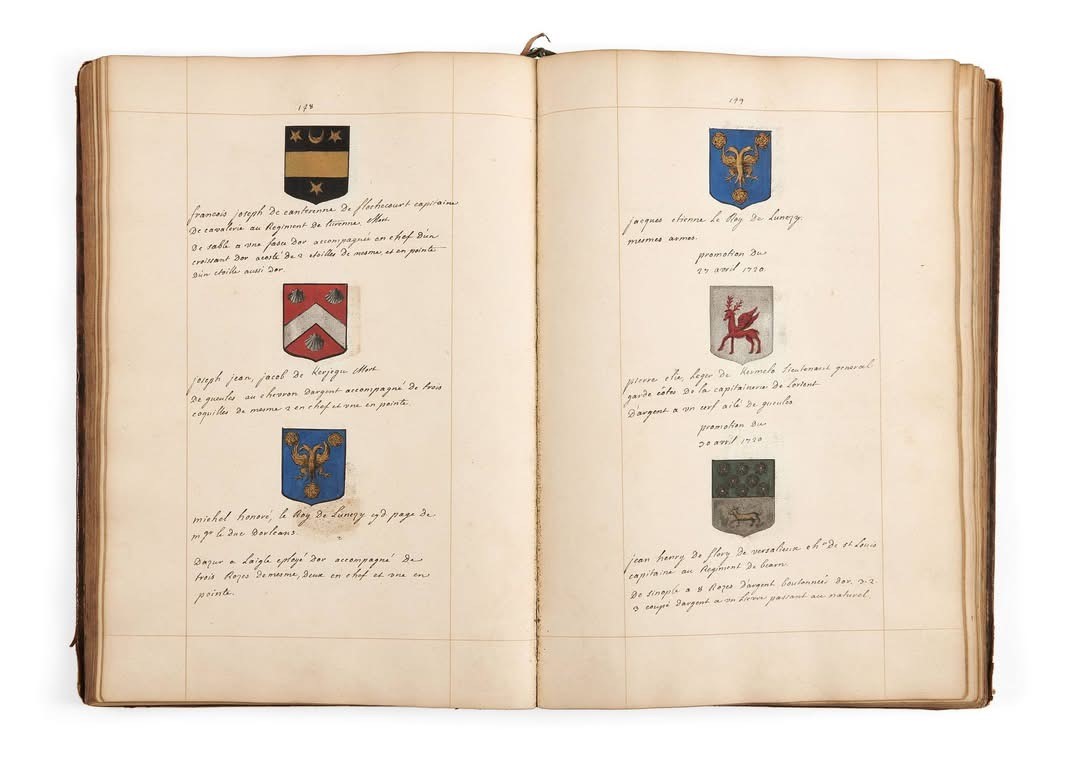 198
francois joseph de canterenne de flochecourt capitaine
de cavalerie au Regiment de turenne Mort
de sable a vne fasce dor accompagné en chef d'un
croissant dor acosté de 2 etoilles de mesme, et en pointe
d'un etoille aussi dor.
joseph jean, jacob de Kerjegu Mort
de gueules au chevron dargent accompagné de trois
coquilles de mesme 2 en chef et vne en pointe.
michel honoré, le Roy de Lunezy page de
mgr le duc Dorleans
Dazur a Laigle eployé dor accompagné de
trois Rozes de mesme, deux en chef et vne en
pointe.
199
jacques etienne Le Roy de Lunezy
mesmes armes.
promotion du
27 avril 1720
pierre elie, Leger de Kermelo Lieutenant general
garde côtes de la capitainerie de Lorient
Dargent a vn cerf ailé de gueules
promotion du
30 avril 1720
jean henry de flory de versalieux chr de st Louis
capitaine au Regiment de bearn
De sinople a 8 Rozes d'argent boutonnées dor. 3. 2.
3 coupé dargent a vn Lievre passant au naturel.